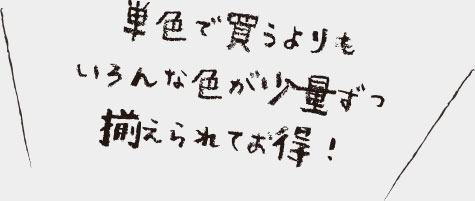 単色で買うよりも
いろんな色が少量ずつ
揃えられてお得！